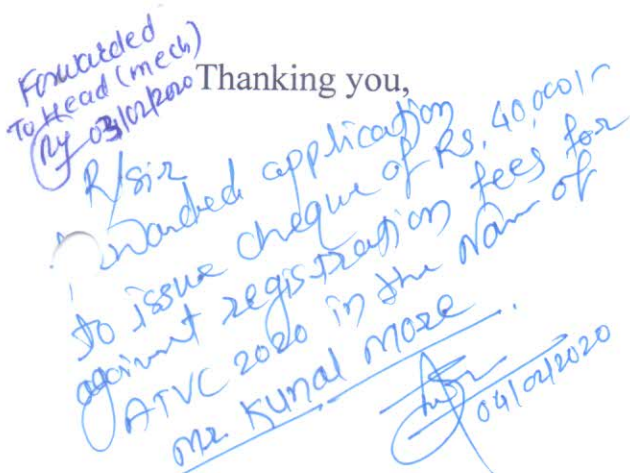 Forwarded
To Head (mech)
03/02/2020
Thanking you,
R/sir
warded application
to issue cheque of Rs. 40,000/-
against registration fees for
ATVC 2020 in the Nam of
Mr. Kunal More.
04/02/2020